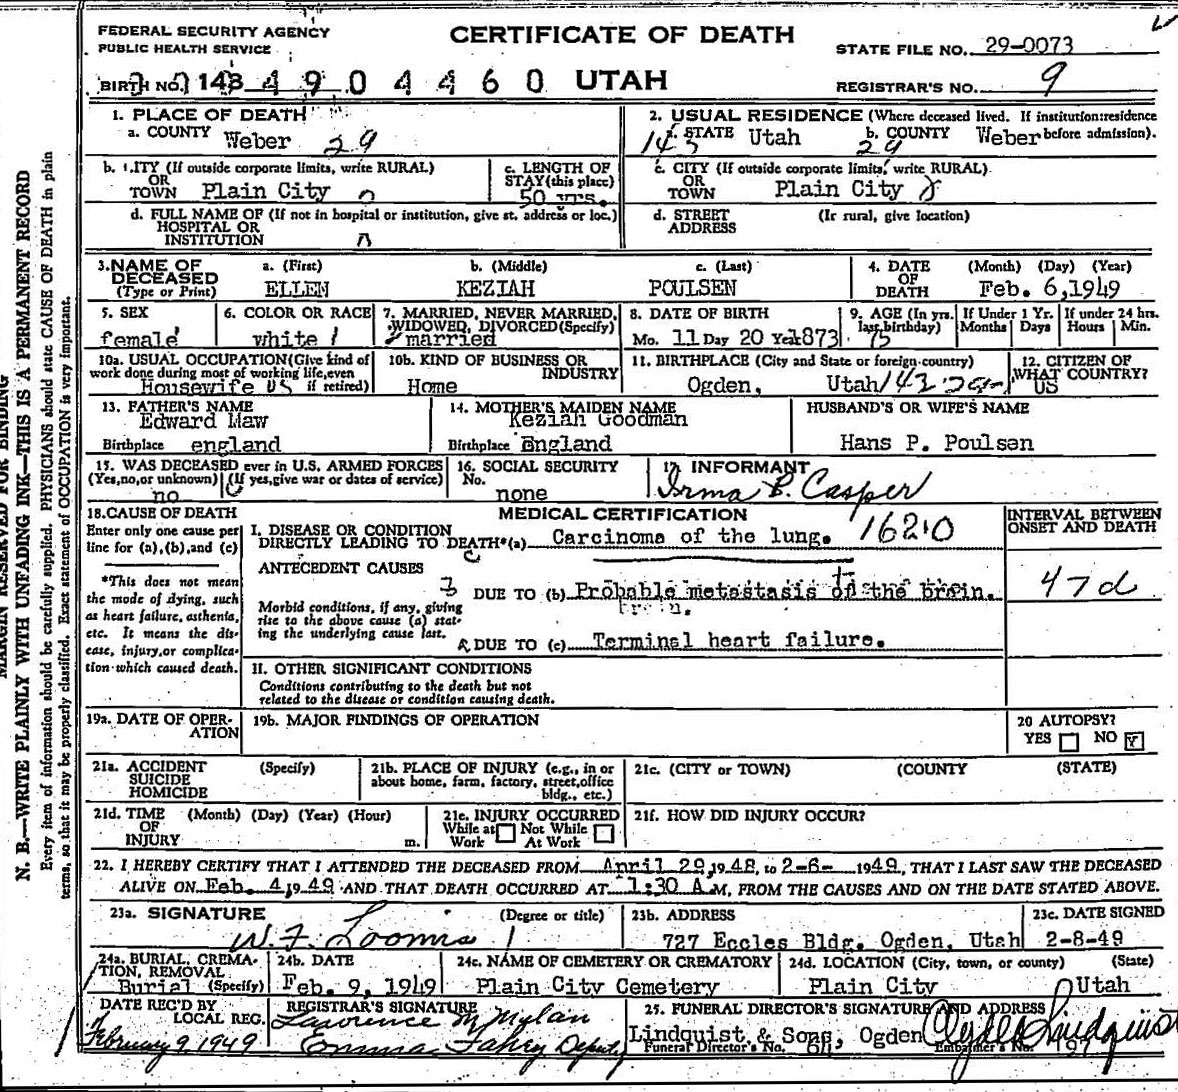 FEDERAL SECURITY AGENCY
PUBLIC HEALTH SERVICE
CERTIFICATE OF DEATH
STATE FILE NO. 29-0073
BIRTH NO. 143 4 9 0 4 4 6 0 UTAH
REGISTRAR'S NO. 9
1. PLACE OF DEATH
a. COUNTY Weber 29
2. USUAL RESIDENCE (Where deceased lived. If institution:residence before admission).
143 STATE Utah b. COUNTY Weber
29
b. CITY (If outside corporate limits, write RURAL)
OR TOWN Plain City
c. LENGTH OF STAY (this place)
50 yrs.
c. CITY (If outside corporate limits, write RURAL)
OR TOWN Plain City
d. FULL NAME OF (If not in hospital or institution, give st. address or loc.)
HOSPITAL OR INSTITUTION
d. STREET ADDRESS (If rural, give location)
3. NAME OF DECEASED (Type or Print)
a. (First) b. (Middle) c. (Last)
ELLEN KEZIAH POULSEN
4. DATE OF DEATH (Month) (Day) (Year)
Feb. 6,1949
5. SEX
female
6. COLOR OR RACE
white
7. MARRIED, NEVER MARRIED, WIDOWED, DIVORCED(Specify)
married
8. DATE OF BIRTH
Mo. 11 Day 20 Year 1873
9. AGE (In yrs. last birthday)
75
If Under 1 Yr. Months Days
If under 24 hrs. Hours Min.
10a. USUAL OCCUPATION(Give kind of work done during most of working life,even if retired)
Housewife
10b. KIND OF BUSINESS OR INDUSTRY
Home
11. BIRTHPLACE (City and State or foreign country)
Ogden, Utah
12. CITIZEN OF WHAT COUNTRY?
US
13. FATHER'S NAME
Edward Maw
Birthplace england
14. MOTHER'S MAIDEN NAME
Keziah Goodman
Birthplace England
HUSBAND'S OR WIFE'S NAME
Hans P. Poulsen
15. WAS DECEASED ever in U.S. ARMED FORCES
(Yes,no,or unknown) (If yes,give war or dates of service)
no
16. SOCIAL SECURITY No.
none
17. INFORMANT
Irma P. Casper
18.CAUSE OF DEATH
Enter only one cause per line for (a),(b),and (c)
*This does not mean the mode of dying, such as heart failure, asthenia, etc. It means the disease, injury,or complication which caused death.
MEDICAL CERTIFICATION
INTERVAL BETWEEN ONSET AND DEATH
I. DISEASE OR CONDITION DIRECTLY LEADING TO DEATH*(a) Carcinoma of the lung. 162.0
ANTECEDENT CAUSES
Morbid conditions, if any, giving rise to the above cause (a) stating the underlying cause last.
DUE TO (b) Probable metastasis of the brain.
47d
DUE TO (c) Terminal heart failure.
II. OTHER SIGNIFICANT CONDITIONS
Conditions contributing to the death but not related to the disease or condition causing death.
19a. DATE OF OPERATION
19b. MAJOR FINDINGS OF OPERATION
20 AUTOPSY?
YES NO
21a. ACCIDENT SUICIDE HOMICIDE (Specify)
21b. PLACE OF INJURY (e.g., in or about home, farm, factory, street,office bldg., etc.)
21c. (CITY or TOWN) (COUNTY) (STATE)
21d. TIME OF INJURY (Month) (Day) (Year) (Hour) m.
21e. INJURY OCCURRED
While at Work Not While At Work
21f. HOW DID INJURY OCCUR?
22. I HEREBY CERTIFY THAT I ATTENDED THE DECEASED FROM April 29,1948, to 2-6- 1949, THAT I LAST SAW THE DECEASED
ALIVE ON Feb. 4,1949 AND THAT DEATH OCCURRED AT 1:30 A.M, FROM THE CAUSES AND ON THE DATE STATED ABOVE.
23a. SIGNATURE (Degree or title)
W. F. Loomis
23b. ADDRESS
727 Eccles Bldg. Ogden, Utah
23c. DATE SIGNED
2-8-49
24a. BURIAL, CREMATION, REMOVAL (Specify)
Burial
24b. DATE
Feb. 9, 1949
24c. NAME OF CEMETERY OR CREMATORY
Plain City Cemetery
24d. LOCATION (City, town, or county) (State)
Plain City Utah
DATE REC'D BY LOCAL REG.
February 9, 1949
REGISTRAR'S SIGNATURE
Lawrence M. Mylan
Emma Fahey Deputy
25. FUNERAL DIRECTOR'S SIGNATURE AND ADDRESS
Lindquist & Sons, Ogden Clyde Lindquist
Funeral Director's No. Embalmer's No.
MARGIN RESERVED FOR BINDING
N. B.—WRITE PLAINLY WITH UNFADING INK—THIS IS A PERMANENT RECORD
Every item of information should be carefully supplied. PHYSICIANS should state CAUSE OF DEATH in plain
terms, so that it may be properly classified. Exact statement of OCCUPATION is very important.